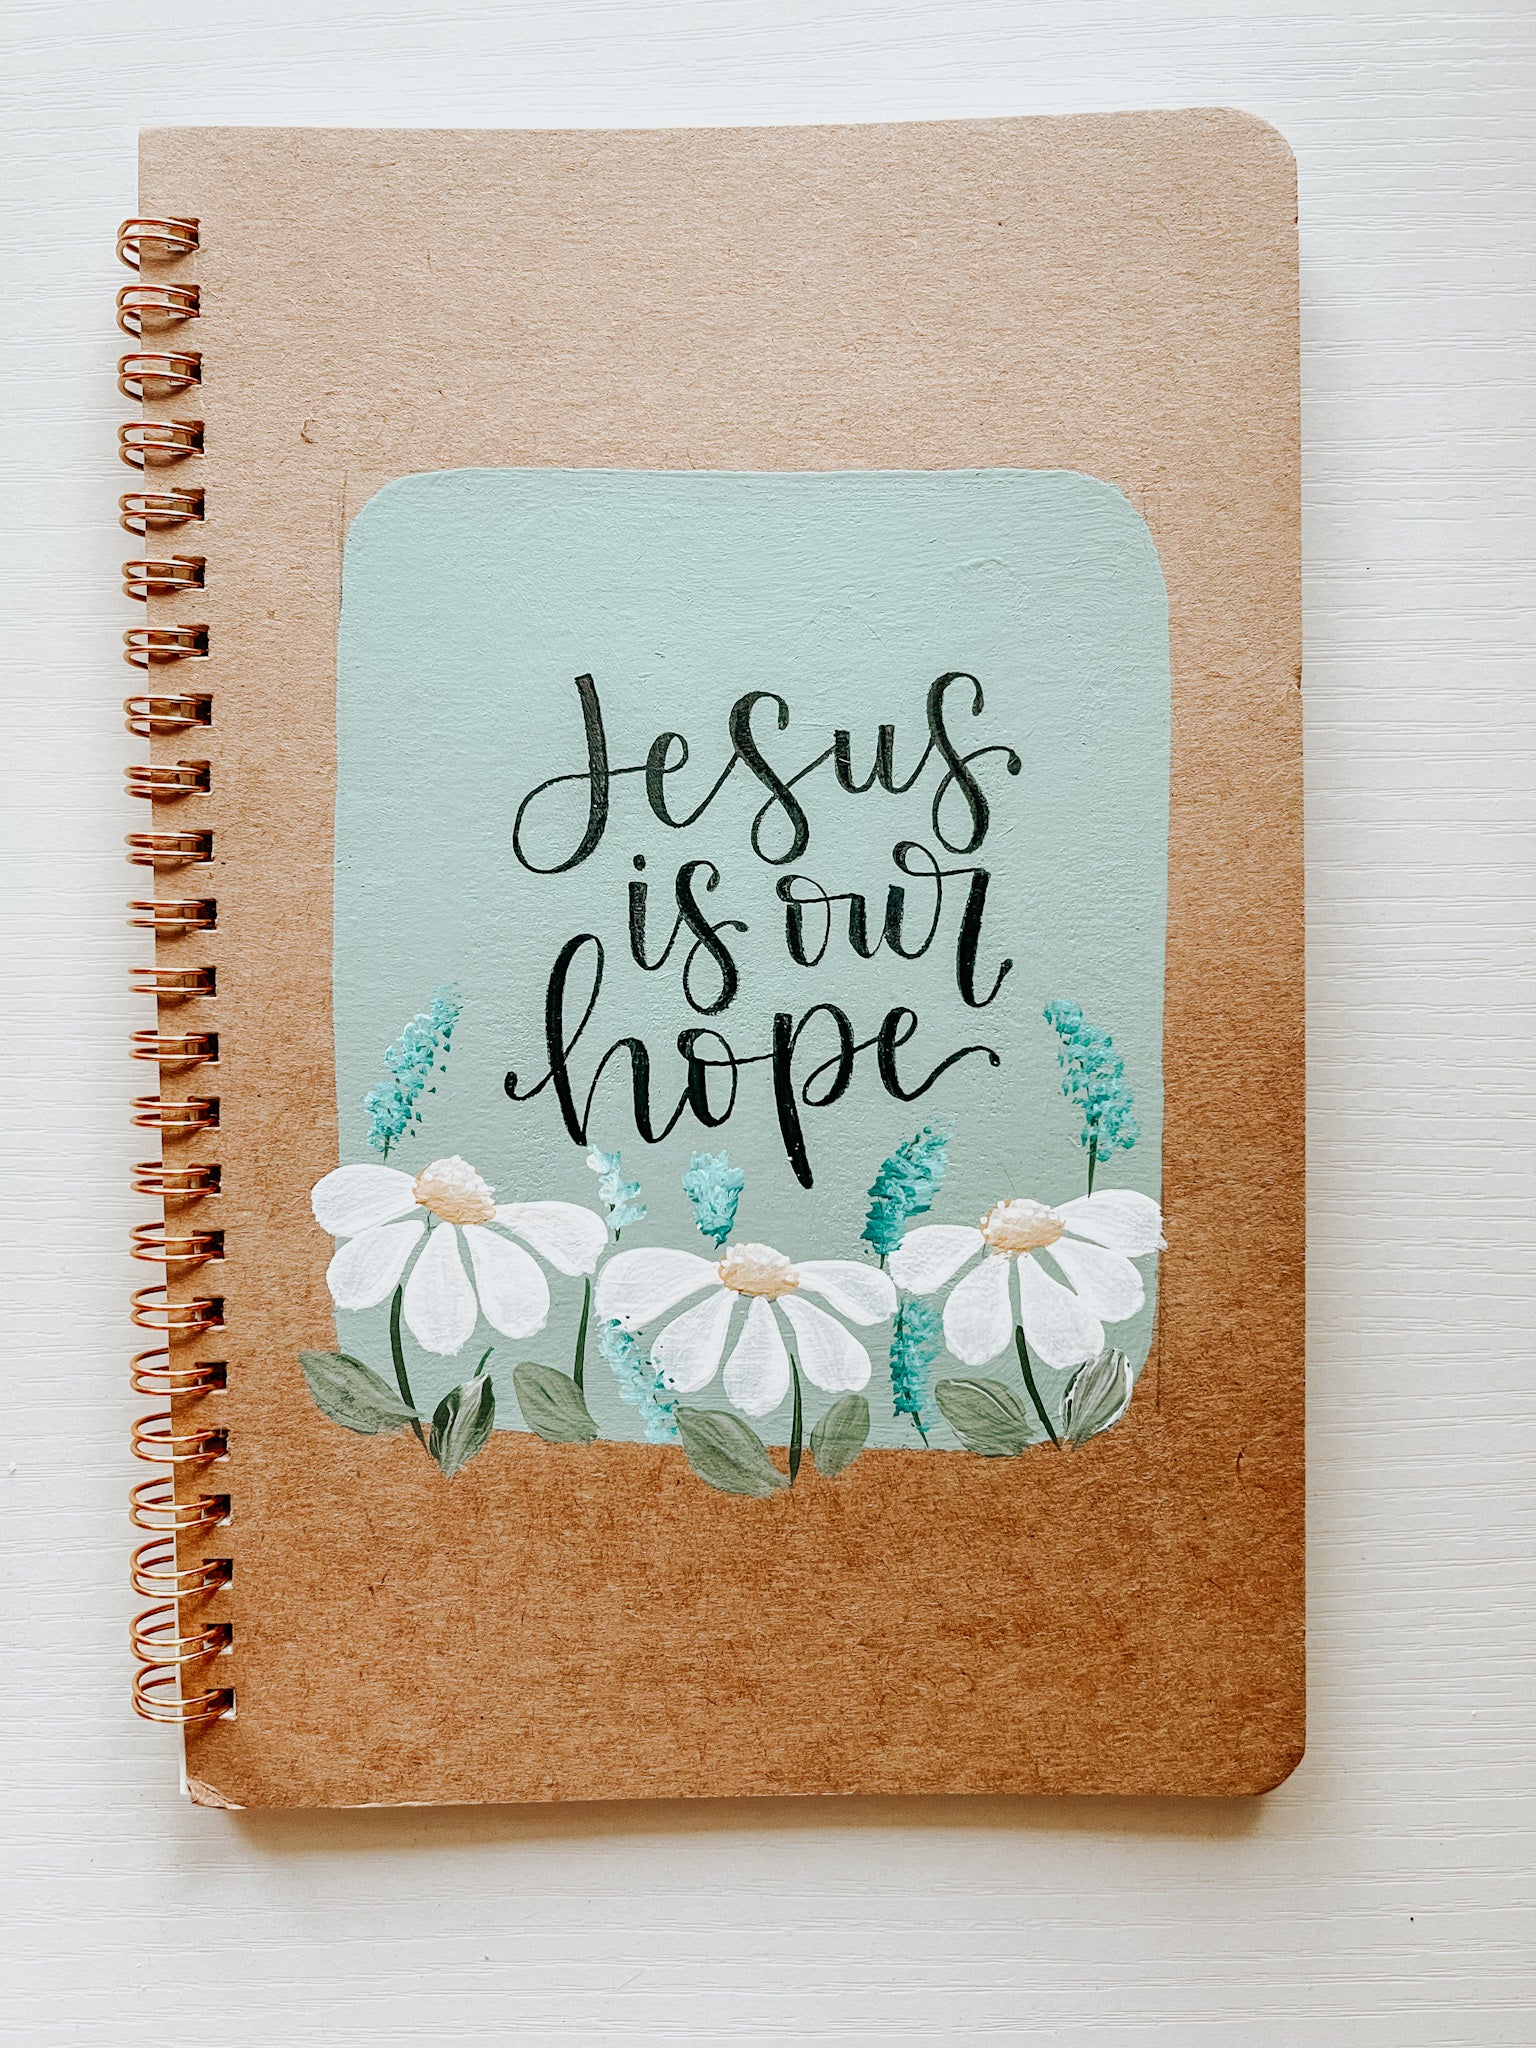 Jesus
is our
hope